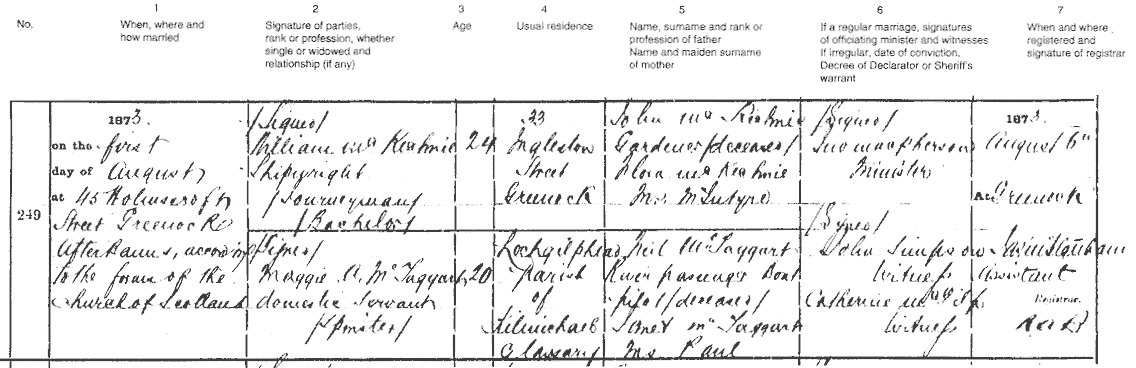 1
2
3
4
5
6
7
No.
When, where and
how married
Signature of parties,
rank or profession, whether
single or widowed and
relationship (if any)
Age
Usual residence
Name, surname and rank or
profession of father
Name and maiden surname
of mother
If a regular marriage, signatures
of officiating minister and witnesses
If irregular, date of conviction,
Decree of Declarator or Sheriff's
warrant
When and where
registered and
signature of registrar
249
1873.
on the first
day of August
at 45 Holmscroft
Street Greenock
After Banns, according
to the forms of the
Church of Scotland
(Signed)
William McKechnie
Shipwright
(Journeyman)
(Bachelor)
24
33
Ingleston
Street
Greenock
John McKechnie
Gardener (deceased)
Flora McKechnie
Ms. McIntyre
(Signed)
Macpherson
Minister
1873.
August 6th
At Greenock
(Signed)
Maggie C. McTaggart
domestic servant
(Spinster)
20
Lochgilphead
parish
of
Kilmichael
Glassary
Neil McTaggart
River passenger Boat
pilot (deceased)
Janet McTaggart
Ms. Paul
(Signed)
John Simpson
Witness
Catherine
Witness
Assistant
Registrar.